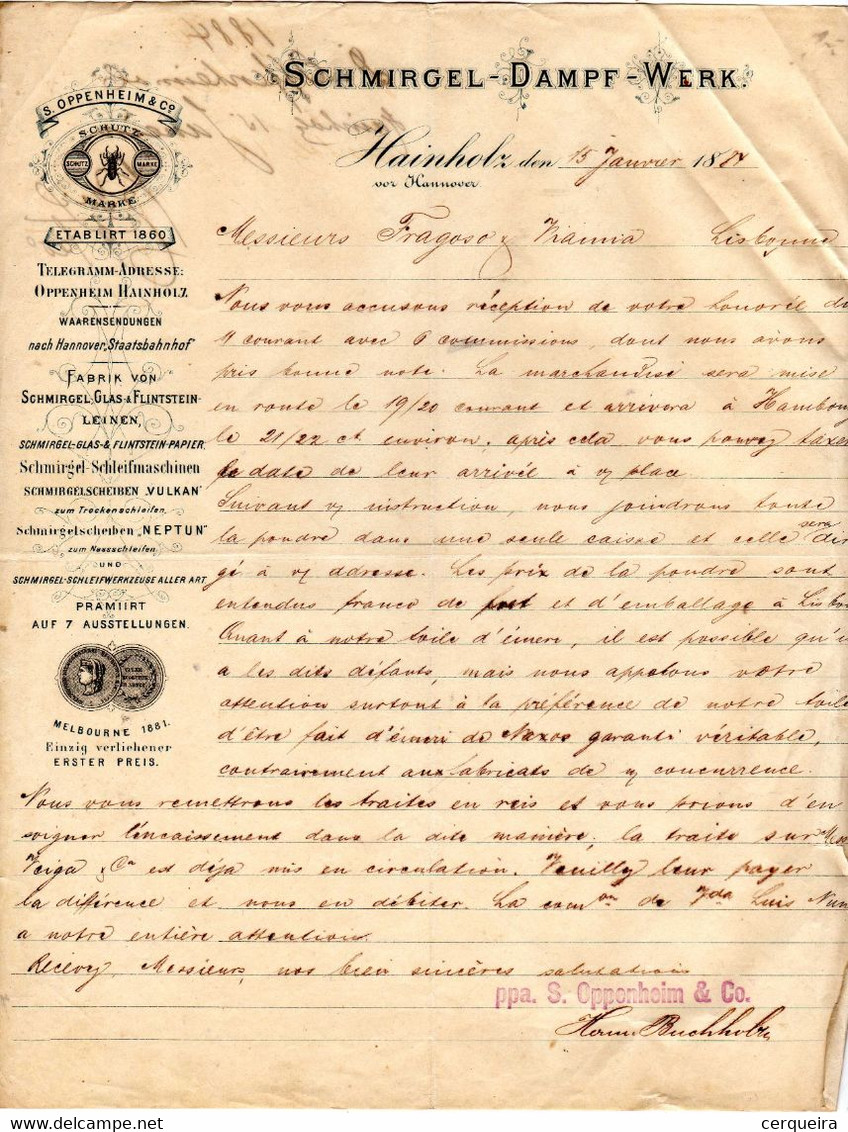 SCHMIRGEL-DAMPF-WERK.
S. OPPENHEIM & Co.
SCHUTZ
SCHUTZ MARKE
MARKE
ETABLIRT 1860
TELEGRAMM-ADRESSE:
OPPENHEIM HAINHOLZ
WAARENSENDUNGEN
nach Hannover, Staatsbahnhof
FABRIK VON
SCHMIRGEL, GLAS & FLINTSTEIN-
LEINEN,
SCHMIRGEL-GLAS- & FLINTSTEIN-PAPIER,
Schmirgel-Schleifmaschinen
SCHMIRGELSCHEIBEN „VULKAN"
zum Trockenschleifen,
Schmirgelscheiben „NEPTUN"
zum Nassschleifen
UND
SCHMIRGEL-SCHLEIFWERKZEUGE ALLER ART
PRAMIIRT
AUF 7 AUSSTELLUNGEN.
MELBOURNE 1881.
Einzig verliehener
ERSTER PREIS.
Hainholz den 15 Janvier 1884
vor Hannover.
Messieurs Fragoso & Lisbonne
Nous vous accusons réception de votre honorée du
4 courant avec 6 commissions, dont nous avons
pris bonne note. La marchandise sera mise
en route le 19/20 courant et arrivera à Hambourg
le 21/22 ct environ, après cela vous pouvez taxer
le date de leur arrivée à v/ place.
Suivant v/ instruction, nous joindrons toute
la poudre dans une seule caisse et celle sera diri
gé à v/ adresse. Les prix de la poudre sont
entendus franco de port et d'emballage à Lisbo
Quant à notre toile d'émere, il est possible qu'i
a les dits défauts, mais nous appelons votre
attention surtout à la préférence de notre toile
d'être fait d'émeri de Naxos garanti véritable,
contrairement aux fabricats de n/ concurrence.
Nous vous remettrons les traites en reis et vous prions d'en
soigner l'encaissement dans la dite manière; la traite sur
Veiga & Ca est déjà mis en circulation. Veuilly leur payer
la différence et nous en débiter. La comon de Vda Luis Nun
a notre entière attention.
Recevez, Messieurs, nos bien sincères salutations
ppa. S. Oppenheim & Co.
Herm. Buchholz
cerqueira